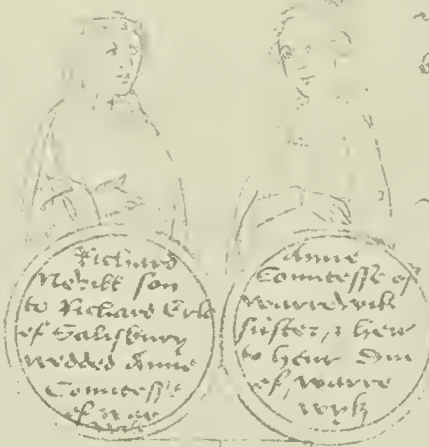 Richard
Nevill son
to Richard Erle
of Salisbury
wedded Anne
Comtesse
of War
wik
Anne
Comtesse of
Warrewik
suster, & heir
to henr Duc
of, warre
wyk